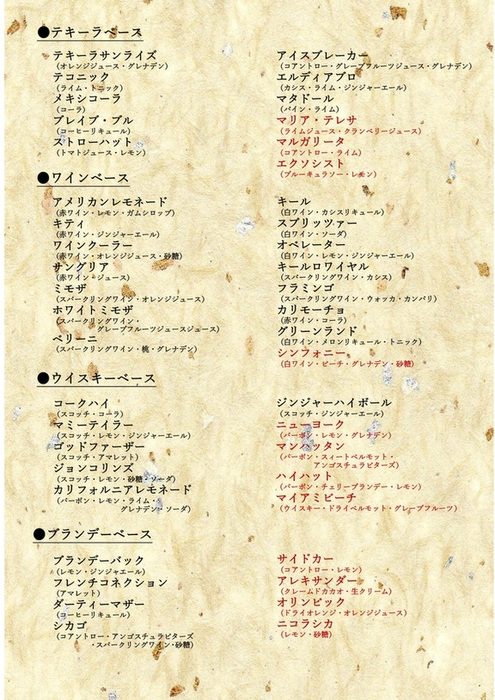 ●テキーラベース
テキーラサンライズ
（オレンジジュース・グレナデン）
テコニック
（ライム・トニック）
メキシコーラ
（コーラ）
ブレイブ・ブル
（コーヒーリキュール）
ストローハット
（トマトジュース・レモン）
アイスブレーカー
（コアントロー・グレープフルーツジュース・グレナデン）
エルディアブロ
（カシス・ライム・ジンジャーエール）
マタドール
（パイン・ライム）
マリア・テレサ
（ライムジュース・クランベリージュース）
マルガリータ
（コアントロー・ライム）
エクソシスト
（ブルーキュラソー・レモン）
●ワインベース
アメリカンレモネード
（赤ワイン・レモン・ガムシロップ）
キティ
（赤ワイン・ジンジャーエール）
ワインクーラー
（赤ワイン・オレンジジュース・砂糖）
サングリア
（赤ワイン・ジュース）
ミモザ
（スパークリングワイン・オレンジジュース）
ホワイトミモザ
（スパークリングワイン・
グレープフルーツジュースジュース）
ベリーニ
（スパークリングワイン・桃・グレナデン）
キール
（白ワイン・カシスリキュール）
スプリッツァー
（白ワイン・ソーダ）
オペレーター
（白ワイン・レモン・ジンジャーエール）
キールロワイヤル
（スパークリングワイン・カシス）
フラミンゴ
（スパークリングワイン・ウォッカ・カンパリ）
カリモーチョ
（赤ワイン・コーラ）
グリーンランド
（白ワイン・メロンリキュール・トニック）
シンフォニー
（白ワイン・ピーチ・グレナデン・砂糖）
●ウイスキーベース
コークハイ
（スコッチ・コーラ）
マミーテイラー
（スコッチ・レモン・ジンジャーエール）
ゴッドファーザー
（スコッチ・アマレット）
ジョンコリンズ
（スコッチ・レモン・砂糖・ソーダ）
カリフォルニアレモネード
（バーボン・レモン・ライム・
グレナデン・ソーダ）
ジンジャーハイボール
（スコッチ・ジンジャーエール）
ニューヨーク
（バーボン・レモン・グレナデン）
マンハッタン
（バーボン・スィートベルモット・
アンゴスチュラビターズ）
ハイハット
（バーボン・チェリーブランデー・レモン）
マイアミビーチ
（ウイスキー・ドライベルモット・グレープフルーツ）
●ブランデーベース
ブランデーバック
（レモン・ジンジャエール）
フレンチコネクション
（アマレット）
ダーティーマザー
（コーヒーリキュール）
シカゴ
（コアントロー・アンゴスチュラビターズ
・スパークリングワイン・砂糖）
サイドカー
（コアントロー・レモン）
アレキサンダー
（クレームドカカオ・生クリーム）
オリンピック
（ドライオレンジ・オレンジジュース）
ニコラシカ
（レモン・砂糖）